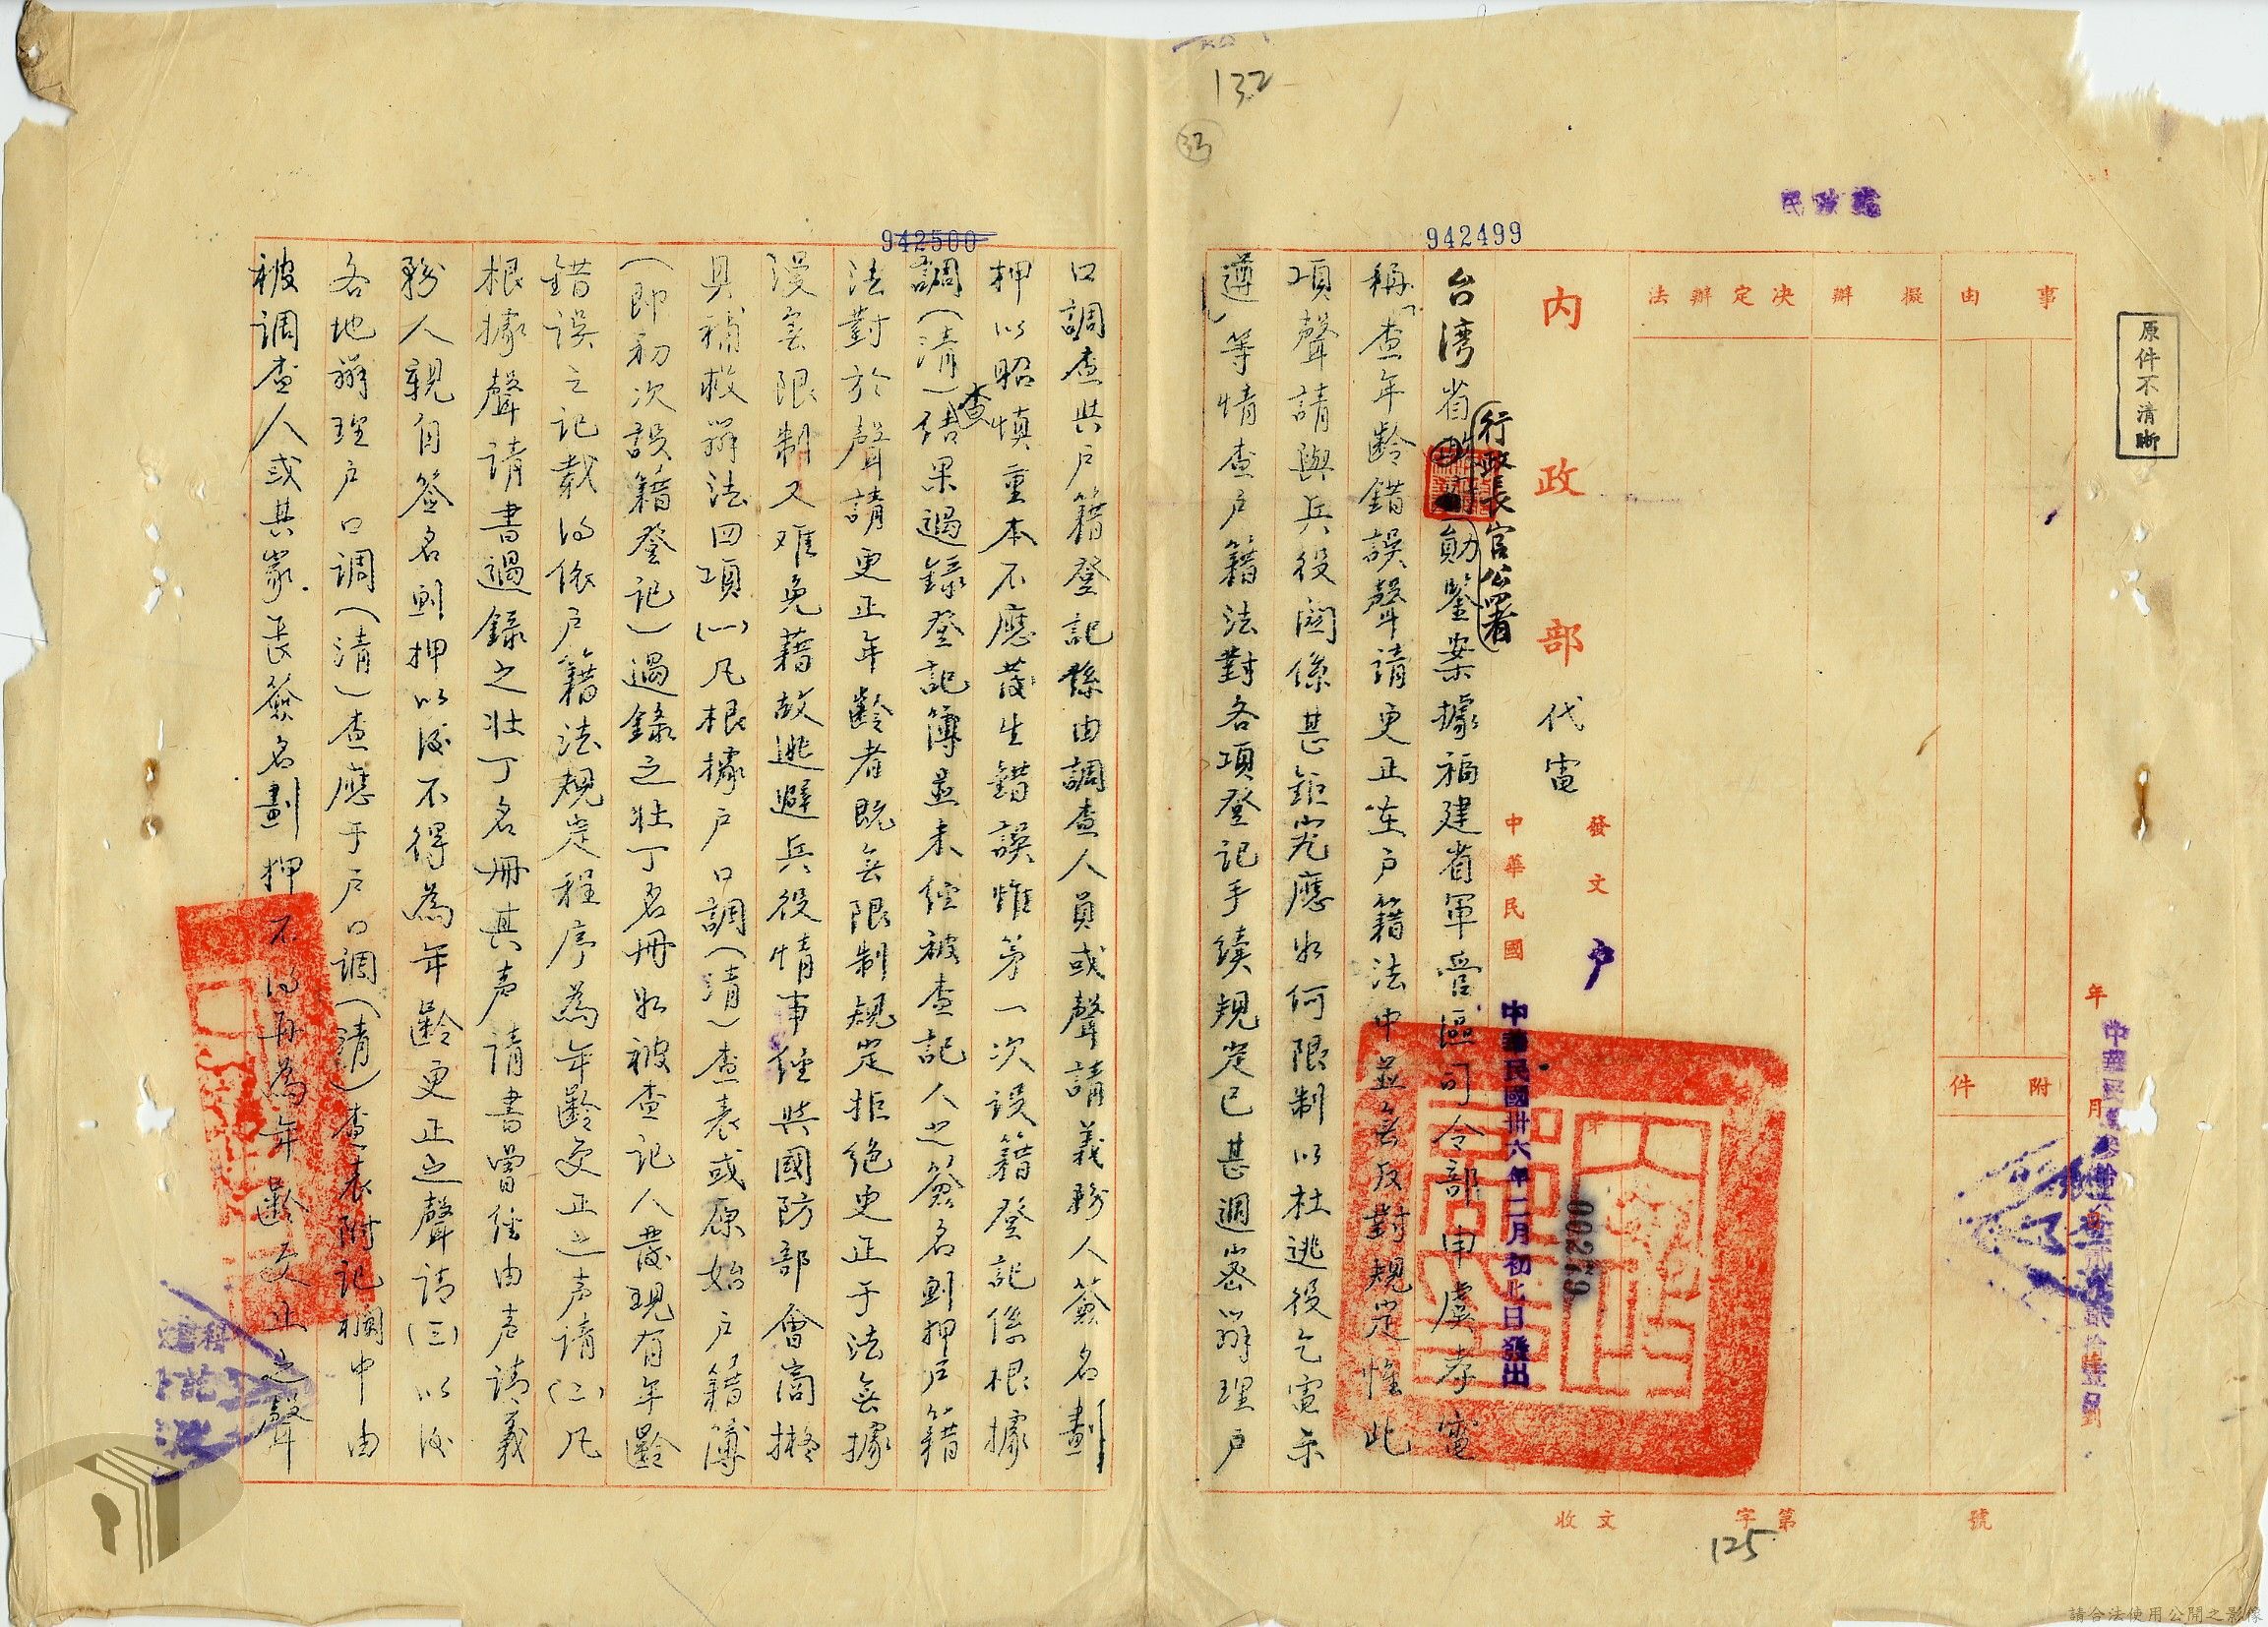 132
33
民政處
942499
942500
原件不清晰
事由
擬辦
決定辦法
附件
年
月
內政部代電
發文 戶
00279
中華民國
中華民國卅六年二月初七日發出
行政長官公署
台灣省勛鑒案據福建省軍管區司令部申虞孝電
稱「查年齡錯誤聲請更正在戶籍法中並無反對規定惟此
項聲請與兵役關係甚鉅究應如何限制以杜逃役乞電示
遵」等情查戶籍法對各項登記手續規定已甚週密以辦理戶
口調查與戶籍登記縣由調查人員或聲請義務人簽名劃
押以昭慎重本不應發生錯誤惟第一次設籍登記係根據
調(清)查結果過錄登記簿並未經被查記人之簽名劃押戶籍
法對於聲請更正年齡者既無限制規定拒絕更正于法無據
漫無限制又难免藉故逃避兵役情事經與國防部會商擬
具補救辦法四項(一)凡根據戶口調(清)查表或原始戶籍簿
(即初次設籍登記)過錄之壯丁名冊如被查記人發現有年齡
錯误之记载得依戶籍法规定程序為年齡更正之声请(二)凡
根據聲请書過錄之壯丁名冊其声请書曾经由声请義
務人親自签名劃押以後不得為年齡更正之聲请(三)以後
各地辦理戶口調(清)查應于戶口調(清)查表附記欄中由
被调查人或其家長簽名劃押不得再為年齡更正之聲
收文 字第 號
125
請合法使用公開之影像